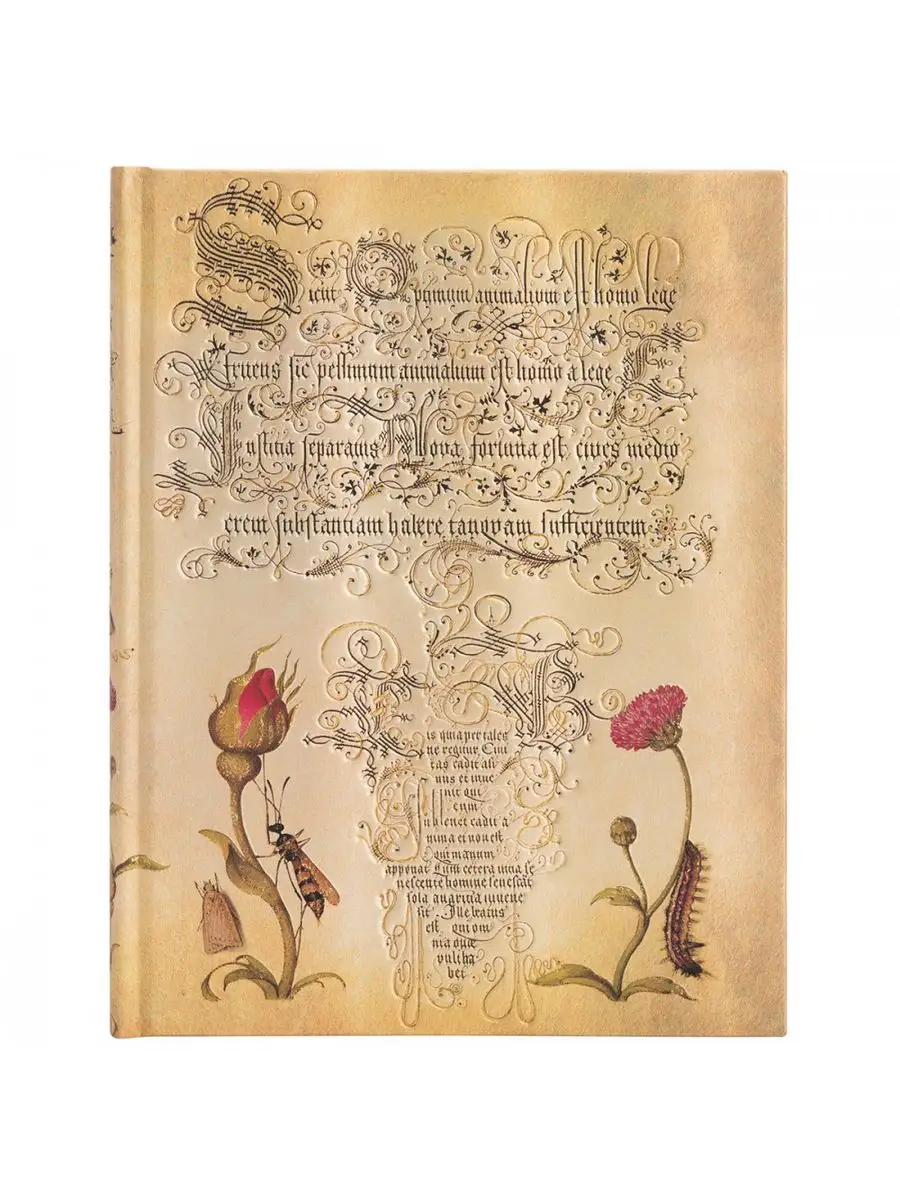 Sicut Optimum animalium est homo lege
fruens sic pessimum animalium est homo a lege Et
Iustitia separatus Nova fortuna est, cives medio
crem substantiam habere tanquam Sufficientem
is quia per tales
ne regitur Civi
tas cadit asi
nus et inve
nit qui
eum
Sublevet cadit a
nima et non est
qui manum
apponat Cum cetera vitia se
nescente homine senescāt
sola avaritia iuvene
sit. Ille beatus
est, qui om
nia quæ
vult ha
bet.